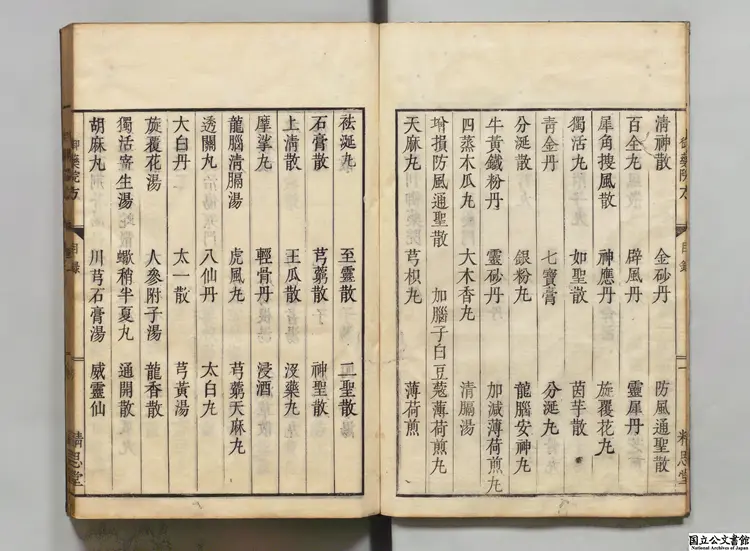 御藥院方 目錄 一 精思堂
清神散 金砂丹 防風通聖散
百全丸 辟風丹 靈犀丹
犀角搜風散 神應丹 旋覆花丸
獨活丸 如聖散 茵芋散
青金丹 七寶膏 分涎丸
分涎散 銀粉丸 龍腦安神丸
牛黃鐵粉丹 靈砂丹 加減薄荷煎丸
四蒸木瓜丸 大木香丸 清膈湯
增損防風通聖散 加腦子白豆蔻薄荷煎丸
天麻丸 芎枳丸 薄荷煎
祛涎丸 至靈散 二聖散
石膏散 芎藭散 神聖散
上清散 王瓜散 沒藥丸
摩挲丸 輕骨丹 浸酒
龍腦清膈湯 虎風丸 芎藭天麻丸
透關丸 八仙丹 太白丸
大白丹 太一散 芎黃湯
旋覆花湯 人參附子湯 龍香散
獨活寄生湯 蠍稍半夏丸 通開散
胡麻丸 川芎石膏湯 威靈仙
御藥院方 目錄 精思堂
国立公文書館
National Archives of Japan